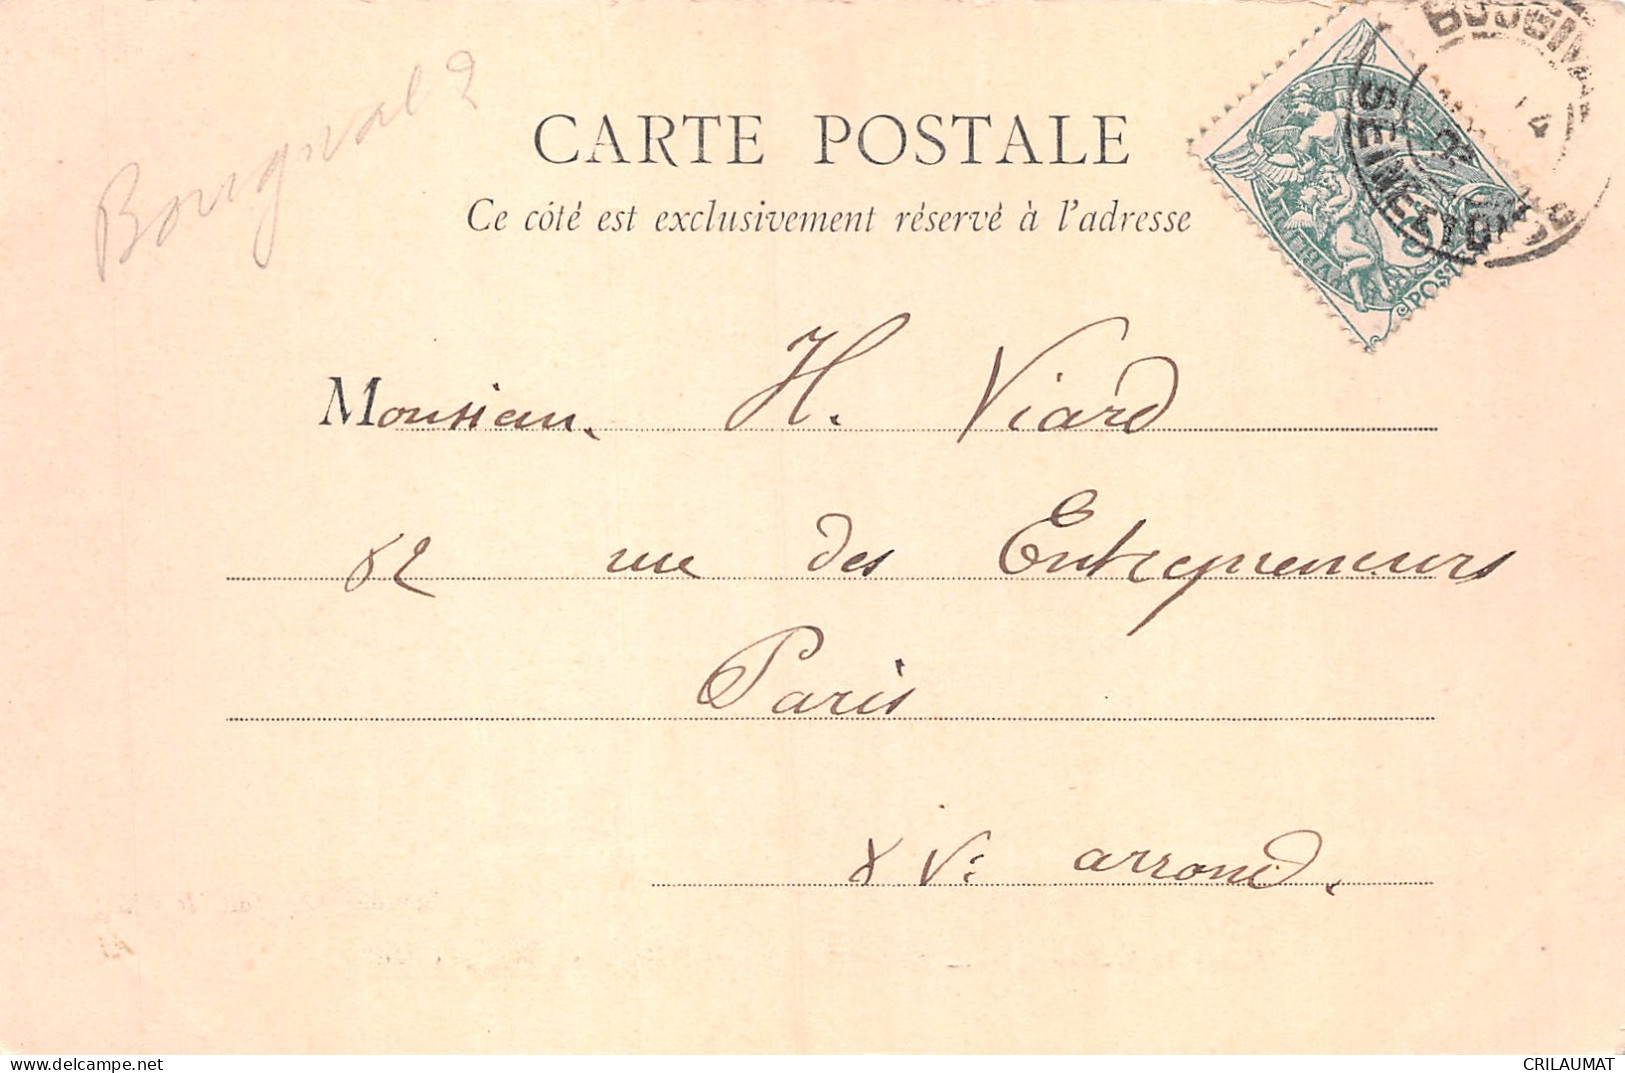 Bougival 2
CARTE POSTALE
Ce côté est exclusivement réservé à l'adresse
BOUGIVAL
SEINE-ET-OISE
POST
Monsieur H. Viard
82 rue des Entrepreneurs
Paris
XVe arrond.
delcampe.net
CRILAUMAT